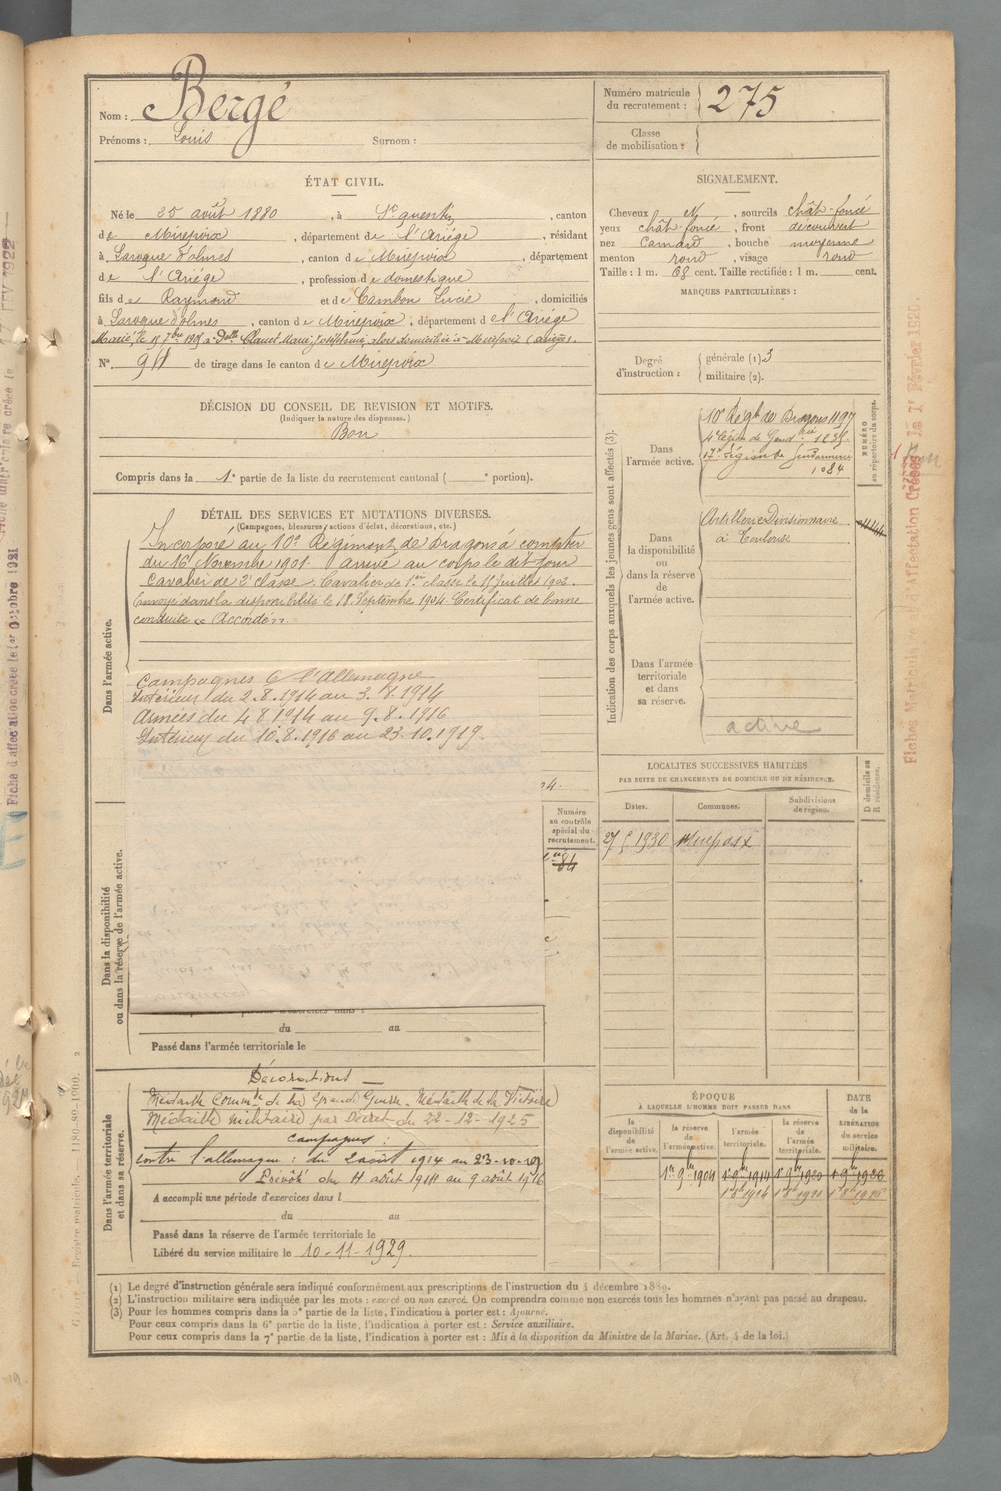 Nom : Bergé
Prénoms : Louis Surnom :
Numéro matricule du recrutement : 275
Classe de mobilisation :
ÉTAT CIVIL.
Né le 25 août 1880, à St quentin, canton
de Mirepoix, département de l'Ariége, résidant
à Laroque d'olmes, canton de Mirepoix, département
de l'Ariége, profession de domestique
fils de Raymond et de Cambon Lucie, domiciliés
à Laroque d'olmes, canton de Mirepoix, département de l'Ariége
Marié, le 15 7bre 1905 à Delle Marie, domiciliée à Mirepoix (Ariège).
N° 91 de tirage dans le canton de Mirepoix
SIGNALEMENT.
Cheveux N, sourcils chât-foncé
yeux chât-foncé, front découvert
nez camard, bouche moyenne
menton rond, visage rond
Taille : 1 m. 68 cent. Taille rectifiée : 1 m. cent.
MARQUES PARTICULIÈRES :
Degré d'instruction : générale (1) 3
militaire (2).
DÉCISION DU CONSEIL DE REVISION ET MOTIFS.
(Indiquer la nature des dispenses.)
Bon
Compris dans la 1e partie de la liste du recrutement cantonal ( e portion).
DÉTAIL DES SERVICES ET MUTATIONS DIVERSES.
(Campagnes, blessures, actions d'éclat, décorations, etc.)
Dans l'armée active.
Incorporé au 10e Régiment de dragons à compter
du 16 Novembre 1901. Arrivé au corps le dit jour
Cavalier de 2e classe. Cavalier de 1ère classe le 15 juillet 1902.
Envoyé dans la disponibilité le 18 Septembre 1904. Certificat de bonne
conduite "Accordé".
Campagnes C l'Allemagne
Intérieur du 2.8.1914 au 3.8.1914
Armées du 4 8 1914 au 9.8.1916
Intérieur du 10.8.1916 au 23.10.1919.
Dans la disponibilité ou dans la réserve de l'armée active.
du au
Passé dans l'armée territoriale le
Numéro au contrôle spécial du recrutement.
Dans l'armée territoriale et dans sa réserve.
Décorations
Médaille Commve de la Grande Guerre. Médaille de la Victoire
Médaille militaire par Décret du 22-12-1925
Campagnes :
contre l'allemagne : du 2 août 1914 au 23-10-19
Prévôté du 4 août 1914 au 9 août 1916
A accompli une période d'exercices dans l
du au
Passé dans la réserve de l'armée territoriale le
Libéré du service militaire le 10-11-1929.
Indication des corps auxquels les jeunes gens sont affectés (3).
NUMÉRO au répertoire du corps.
Dans l'armée active.
10e Régt de Dragons 1197
17e Légion de Gendarmerie
1084
Dans la disponibilité ou dans la réserve de l'armée active.
Artillerie Divisionnaire
à Toulouse
Dans l'armée territoriale et dans sa réserve.
active
LOCALITÉS SUCCESSIVES HABITÉES
PAR SUITE DE CHANGEMENTS DE DOMICILE OU DE RÉSIDENCE.
D domicile ou R résidence.
Dates. Communes. Subdivisions de région.
27 5 1930 Mirepoix
ÉPOQUE
À LAQUELLE L'HOMME DOIT PASSER DANS
DATE de la LIBÉRATION du service militaire.
la disponibilité de l'armée active. la réserve de l'armée active. l'armée territoriale. la réserve de l'armée territoriale.
1er 9bre 1904 1er 9bre 1914 1er 9bre 1920 1er 9bre 1926
(1) Le degré d'instruction générale sera indiqué conformément aux prescriptions de l'instruction du 4 décembre 1889.
(2) L'instruction militaire sera indiquée par les mots : exercé ou non exercé. On comprendra comme non exercés tous les hommes n'ayant pas passé au drapeau.
(3) Pour les hommes compris dans la 5e partie de la liste, l'indication à porter est : Ajourné.
Pour ceux compris dans la 6e partie de la liste, l'indication à porter est : Service auxiliaire.
Pour ceux compris dans la 7e partie de la liste, l'indication à porter est : Mis à la disposition du Ministre de la Marine. (Art. 4 de la loi.)
Fiche d'affectation créée le 1er Octobre 1921
Fiches Matricule et d'Affectation Créées le 1er Février 1920.
Registre matricule. 1180-89-1900.